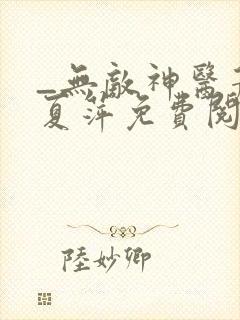 _無敵神醫
夏萍免費閱
陸妙卿